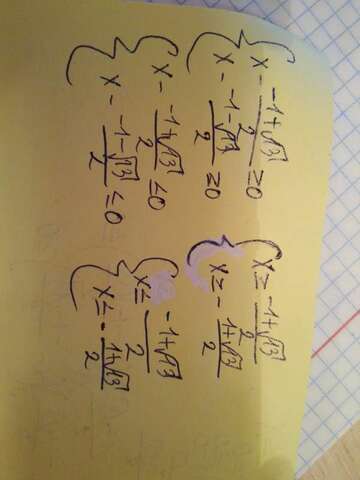 { x - (-1+√13)/2 ≥ 0 { x ≥ (-1+√13)/2
x - (-1-√13)/2 ≥ 0 x ≥ - (1+√13)/2
{ x - (-1+√13)/2 ≤ 0 { x ≤ (-1+√13)/2
x - (-1-√13)/2 ≤ 0 x ≤ - (1+√13)/2